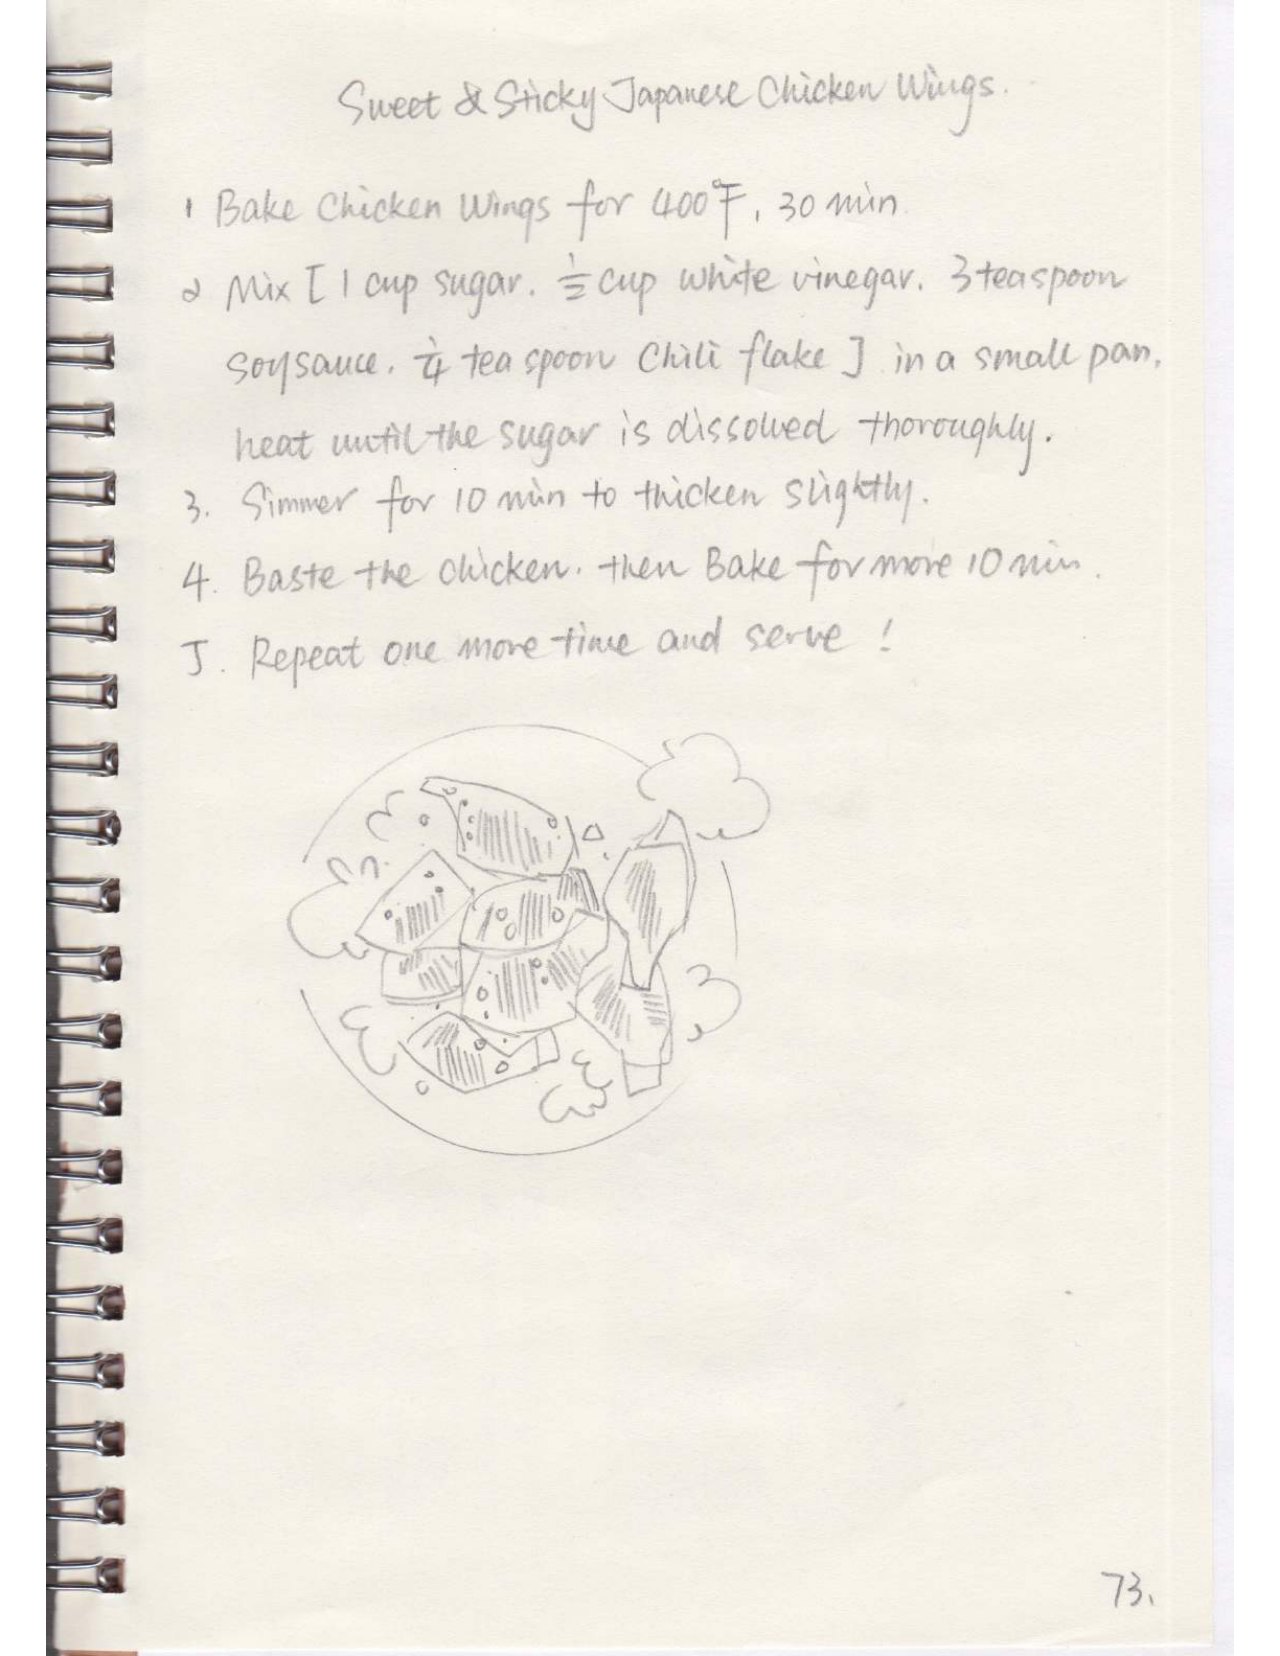 Sweet & Sticky Japanese Chicken Wings.
1 Bake Chicken Wings for 400°F, 30 min
2 Mix [ 1 cup sugar. 1/2 cup white vinegar. 3 teaspoon
soysauce. 1/4 tea spoon Chili flake ] in a small pan.
heat until the sugar is dissolved thoroughly.
3. Simmer for 10 min to thicken slightly.
4. Baste the chicken. then Bake for more 10 min.
5. Repeat one more time and serve !
73.